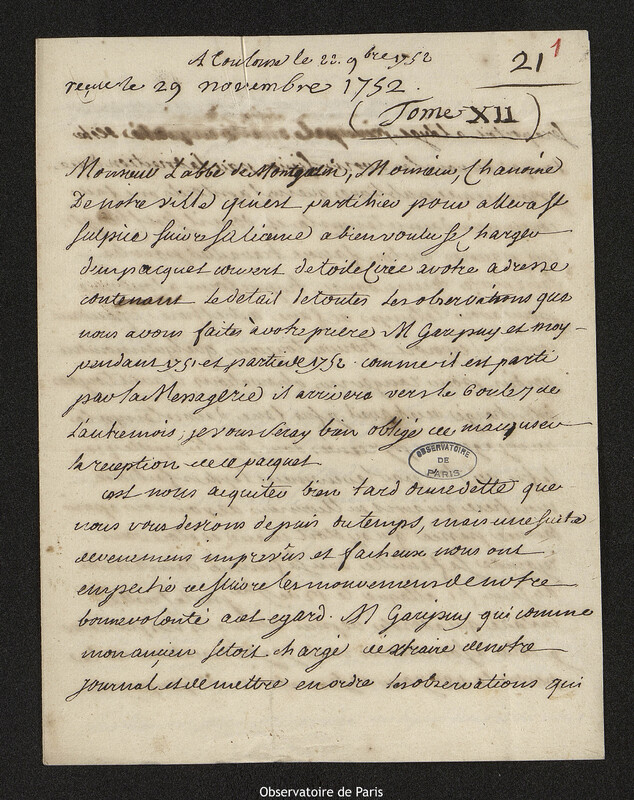 A Toulouse le 22. 9bre 1752
reçue le 29 novembre 1752.
21 1
(Tome XII)
Monsieur L'abbé de Montgazin, Monsieur, Chanoine
De notre ville qui est parti hier pour aller a st
sulpice suivre sa licence a bien voulu se charger
d'un pacquet couvert de toile cirée a votre adresse
contenant le detail de toutes les observations que
nous avons faites à votre priere M Garipuy et moy
pendant 1751 et partie de 1752. comme il est parti
par la Messagerie il arrivera vers le 6 ou le 7 de
L'autre mois, je vous seray bien obligé de m'accuser
la reception de ce pacquet
cest nous acquiter bien tard d'une dette que
nous vous devions depuis du temps, mais une suite
d'evenemens imprevûs et facheux nous ont
empeché de suivre les mouvemens de notre
bonne volonté a cet egard. M Garipuy qui comme
mon ancien setoit chargé d'extraire de notre
journal, et de mettre en ordre les observations qui
OBSERVATOIRE
DE
PARIS
Observatoire de Paris